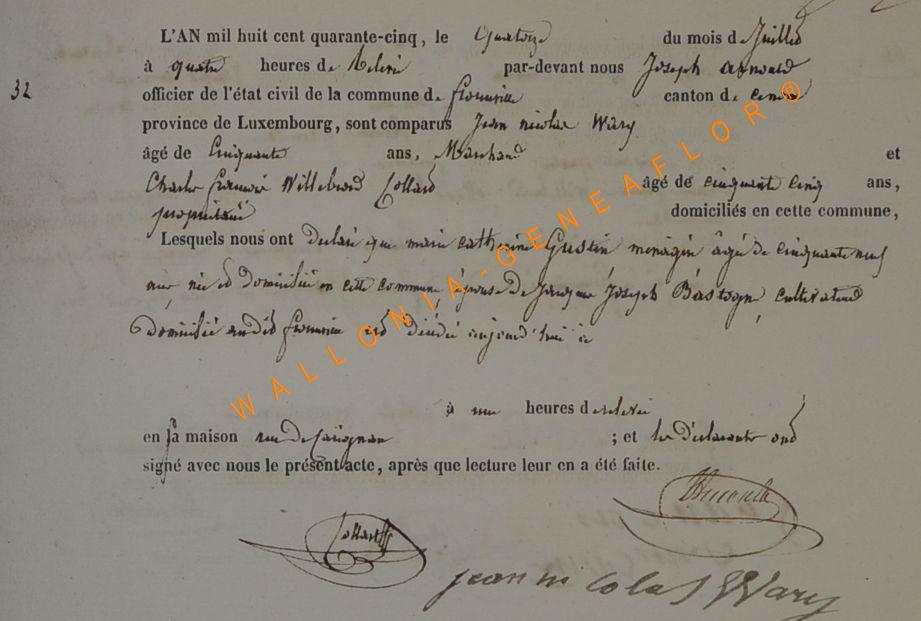 L'AN mil huit cent quarante-cinq, le quatorze du mois de Juillet
à quatre heures de Relevée par-devant nous Joseph arnould
32
officier de l'état civil de la commune de florenville canton de
province de Luxembourg, sont comparus Jean nicolas Wary
âgé de Cinquante ans, Marchand et
Charles Willebrord Collard âgé de cinquante cinq ans,
propriétaire domiciliés en cette commune,
Lesquels nous ont déclaré que marie catherine Gustin menagère âgée de cinquante neuf
ans, née et domiciliée en cette commune épouse de Jacques Joseph Bastogne, cultivateur
domicilié audit florenville est décédée aujourd'hui
à une heures de relevée
en sa maison rue de Carignan ; et les déclarants ont
signé avec nous le présent acte, après que lecture leur en a été faite.
Collard
jean nicolas Wary
WALLONIA-GENEAFLOR®